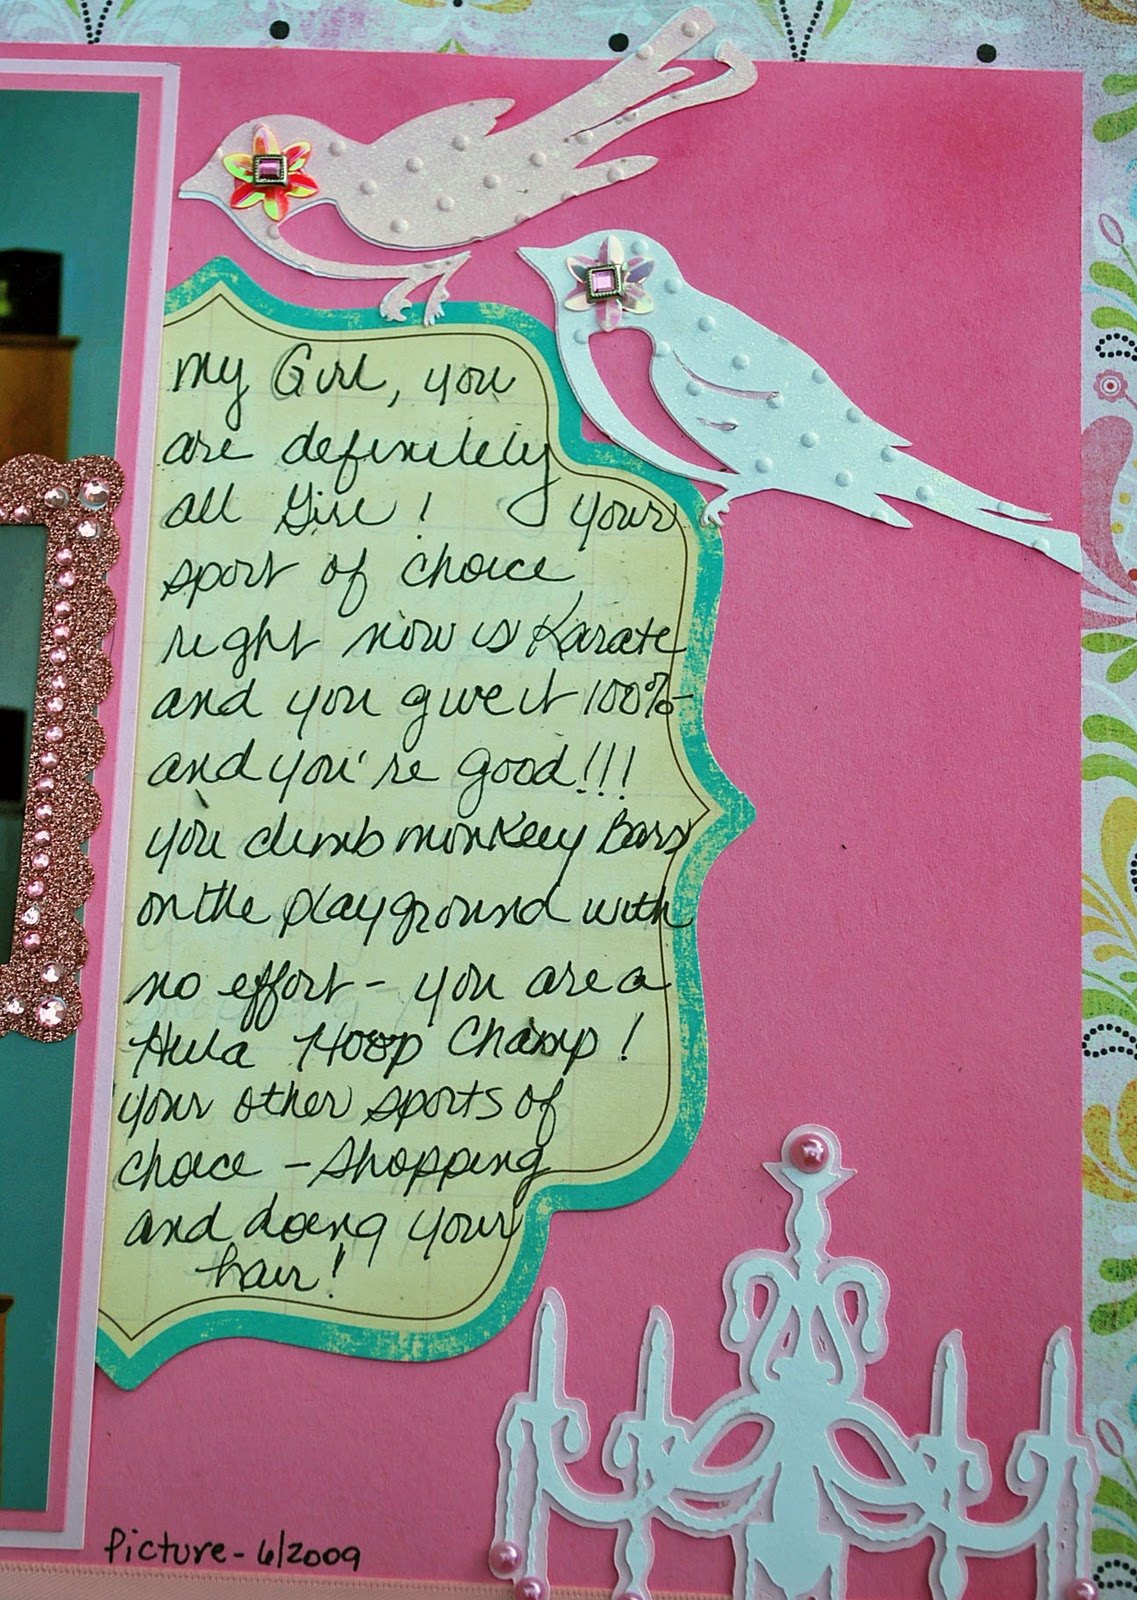 My Girl, you
are definitely
all Girl! Your
sport of choice
right now is Karate
and you give it 100%-
and you're good!!!
You climb monkey Bars
on the playground with
no effort - you are a
Hula Hoop Champ!
Your other sports of
choice - Shopping
and doing your
hair!
Picture - 6/2009